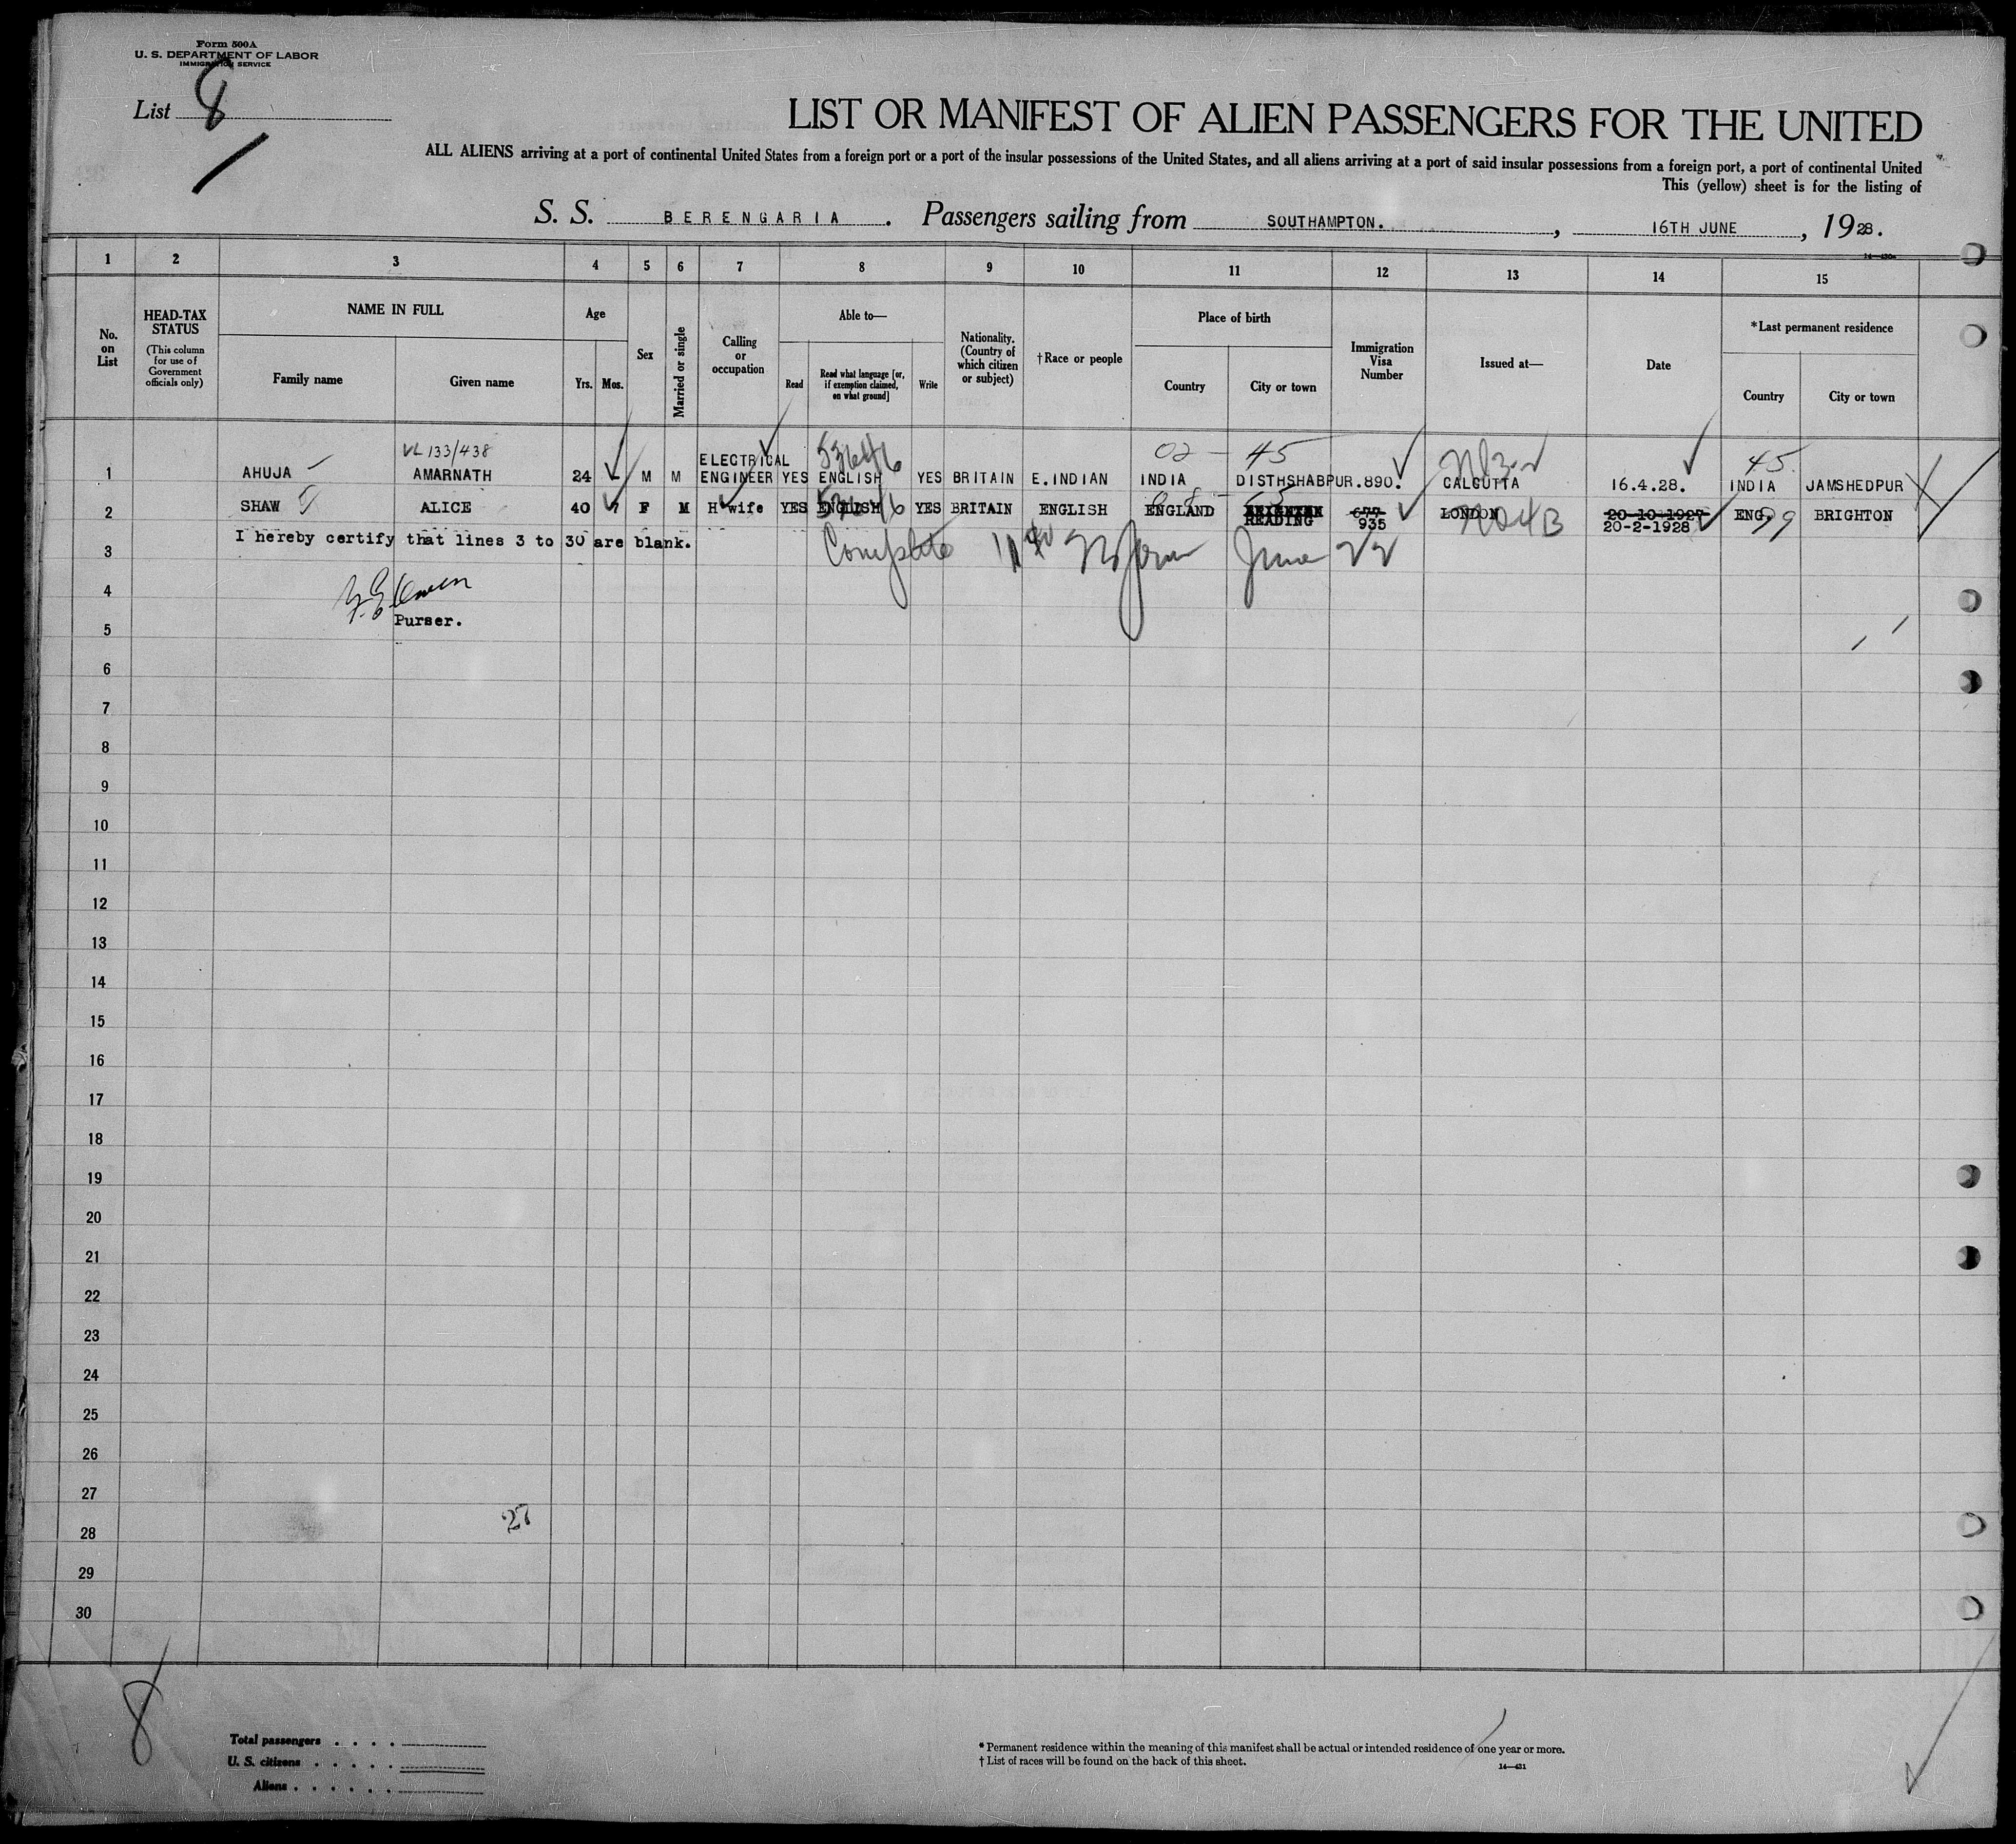 Form 500A
U. S. DEPARTMENT OF LABOR
IMMIGRATION SERVICE
List 8
LIST OR MANIFEST OF ALIEN PASSENGERS FOR THE UNITED
ALL ALIENS arriving at a port of continental United States from a foreign port or a port of the insular possessions of the United States, and all aliens arriving at a port of said insular possessions from a foreign port, a port of continental United
This (yellow) sheet is for the listing of
S. S. BERENGARIA. Passengers sailing from SOUTHAMPTON., 16TH JUNE, 1928.
1 2 3 4 5 6 7 8 9 10 11 12 13 14 15
No. on List
HEAD-TAX STATUS
(This column for use of Government officials only)
NAME IN FULL
Family name
Given name
Age
Yrs.
Mos.
Sex
Married or single
Calling or occupation
Able to—
Read
Read what language [or, if exemption claimed, on what ground]
Write
Nationality. (Country of which citizen or subject)
†Race or people
Place of birth
Country
City or town
Immigration Visa Number
Issued at—
Date
*Last permanent residence
Country
City or town
VL 133/438 53646 02 - 45 45
1 AHUJA AMARNATH 24 M M ELECTRICAL ENGINEER YES ENGLISH YES BRITAIN E.INDIAN INDIA DISTHSHABPUR. 890. CALCUTTA 16.4.28. INDIA JAMSHEDPUR
2 SHAW ALICE 40 F M H wife YES ENGLISH YES BRITAIN ENGLISH ENGLAND BRIGHTON READING 677 935 LONDON 20-10-1927 20-2-1928 ENG. 99 BRIGHTON
I hereby certify that lines 3 to 30 are blank.
3 Complete June 22
4
Purser.
5
6
7
8
9
10
11
12
13
14
15
16
17
18
19
20
21
22
23
24
25
26
27
27
28
29
30
8
Total passengers . . . .
U. S. citizens . . . . .
Aliens . . . . . .
* Permanent residence within the meaning of this manifest shall be actual or intended residence of one year or more.
† List of races will be found on the back of this sheet.
14—431